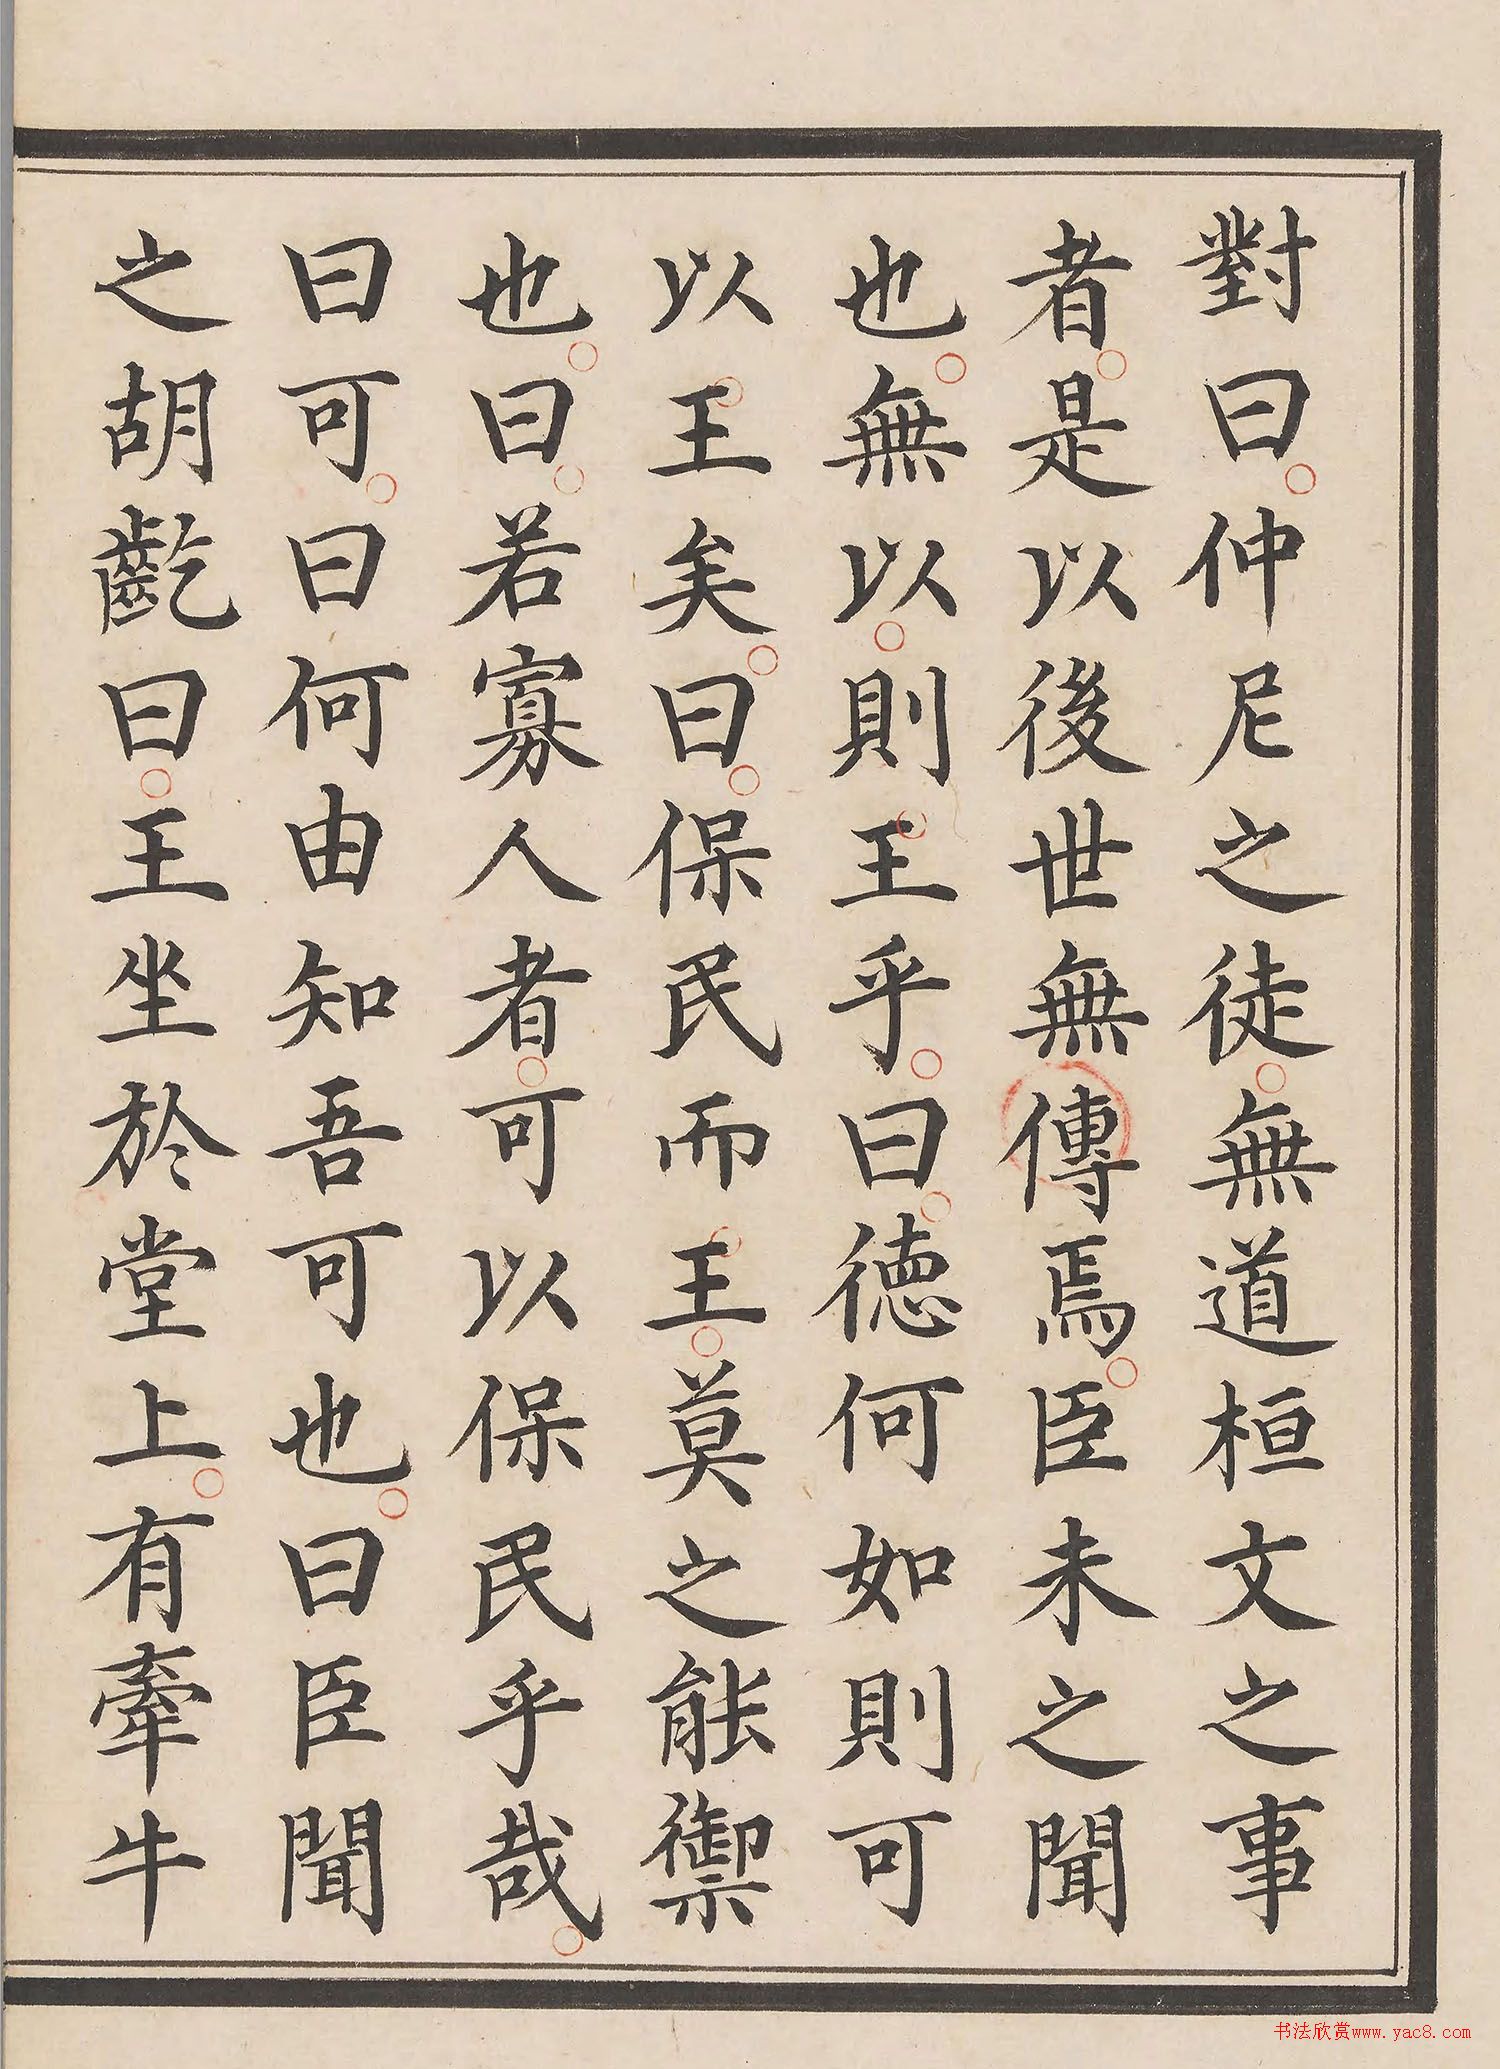 對曰仲尼之徒無道桓文之事
者是以後世無傳焉臣未之聞
也無以則王乎曰徳何如則可
以王矣曰保民而王莫之能禦
也曰若寡人者可以保民乎哉
曰可曰何由知吾可也曰臣聞
之胡齕曰王坐於堂上有牽牛
书法欣赏www.yac8.com